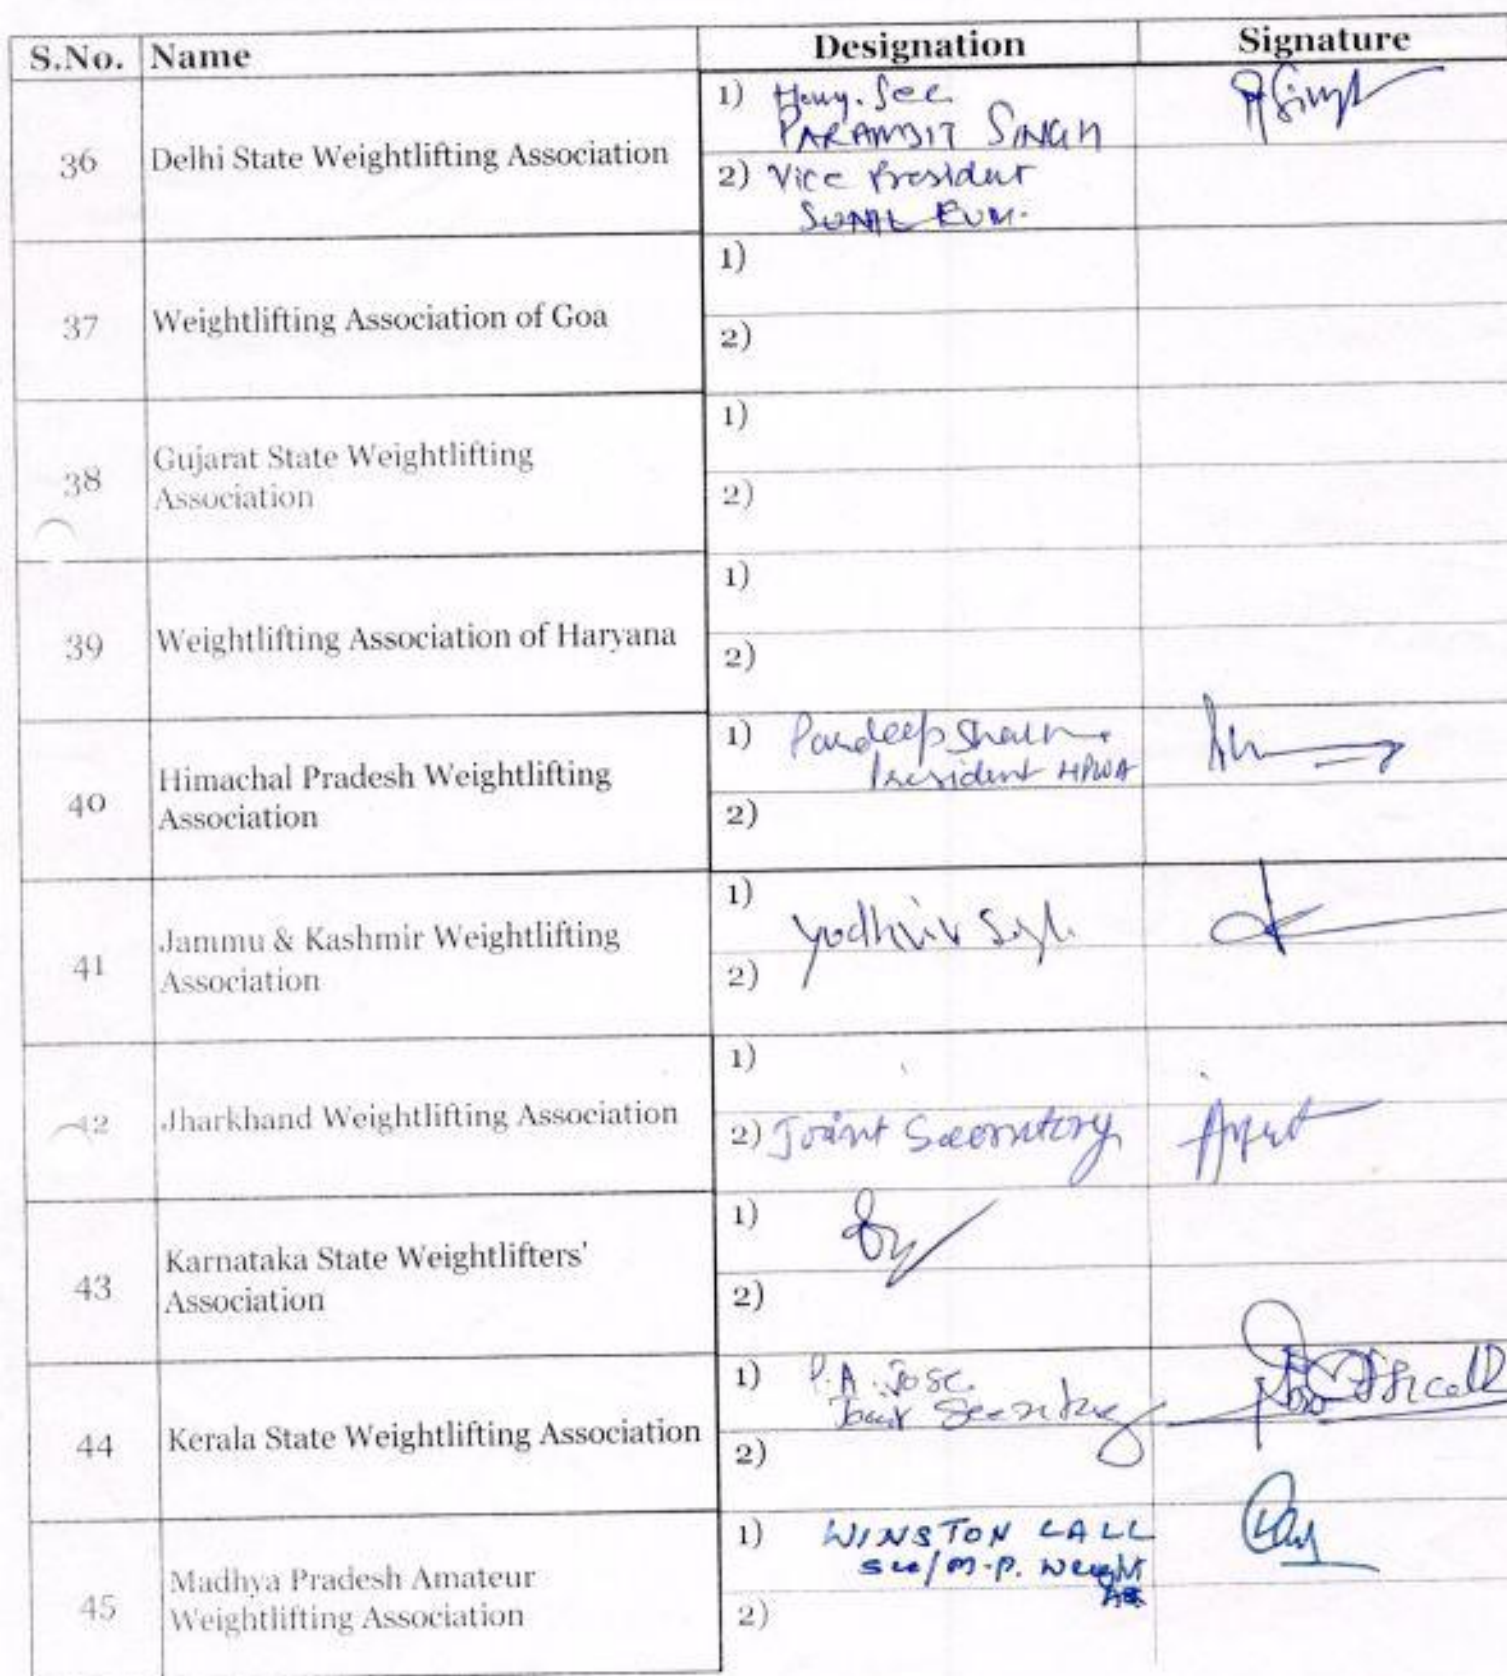 S.No. Name Designation Signature
36 Delhi State Weightlifting Association
1) Hony. Sec
PARAMJIT SINGH
2) Vice President
SUNIL KUM.
37 Weightlifting Association of Goa
1)
2)
38 Gujarat State Weightlifting
Association
1)
2)
39 Weightlifting Association of Haryana
1)
2)
40 Himachal Pradesh Weightlifting
Association
1) Pardeep Sharma
President HPWA
2)
41 Jammu & Kashmir Weightlifting
Association
1) Yudhvir
2)
42 Jharkhand Weightlifting Association
1)
2) Joint Secorntory
43 Karnataka State Weightlifters'
Association
1)
2)
44 Kerala State Weightlifting Association
1) P.A. Jose
Joint
2)
45 Madhya Pradesh Amateur
Weightlifting Association
1) WINSTON LALL
sec/M.P. Weight
2)